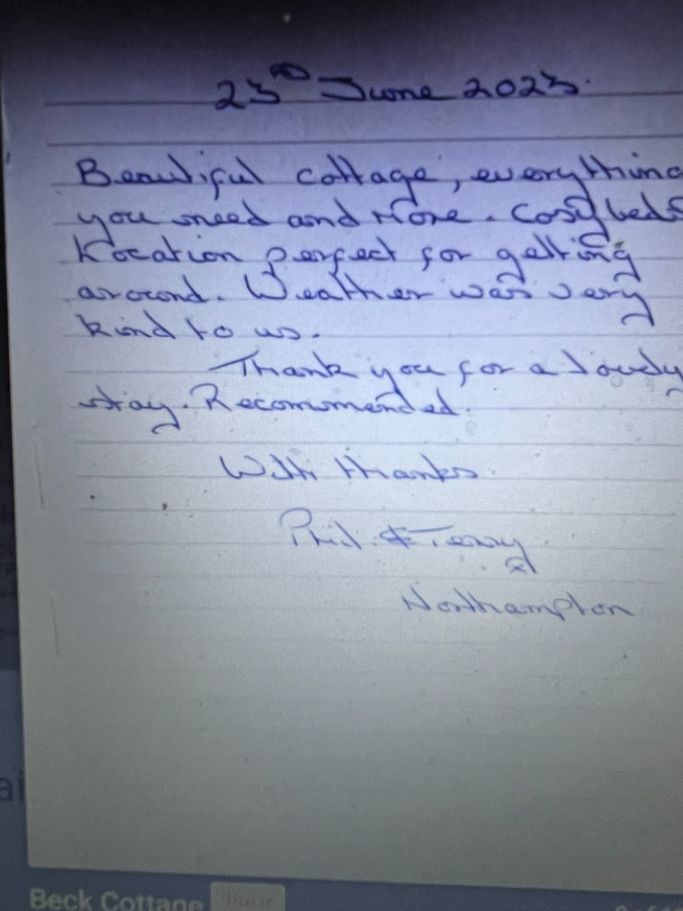 23rd June 2023.
Beautiful cottage, everything
you need and more. Cosy beds
Location perfect for getting
around. Weather was very
kind to us.
Thank you for a lovely
stay. Recommended.
With thanks
Phil & Terry
x
Northampton
Beck Cottage